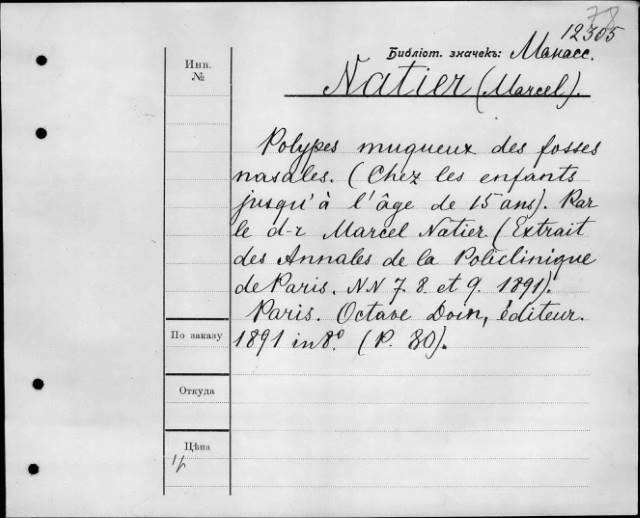 78
12305
Инв.
№
Библіот. значекъ: Манасс.
Natier (Marcel).
Polypes muqueux des fosses
nasales. (Chez les enfants
jusqu'à l'âge de 15 ans). Par
le d-r Marcel Natier (Extrait
des Annales de la Policlinique
de Paris. NN 7. 8. et 9. 1891).
Paris. Octave Doin, éditeur.
По заказу
1891 in 8º. (P. 80).
Откуда
Цѣна